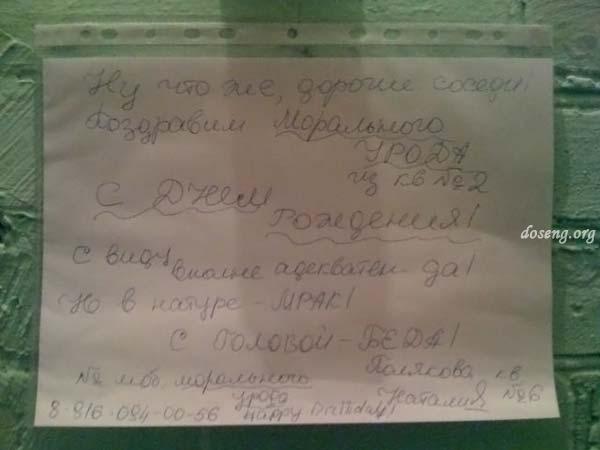 Ну что же, дорогие соседи!
Поздравим Морального
УРОДА
из кв №2
С ДНЕМ
РОЖДЕНИЯ!
doseng.org
С виду вполне адекватен - да!
Но в натуре - МРАК!
С ГОЛОВОЙ - БЕДА!
Полякова кв
№ моб. морального
Наталия №6
урода
8-916-084-00-56 Happy Birthday!